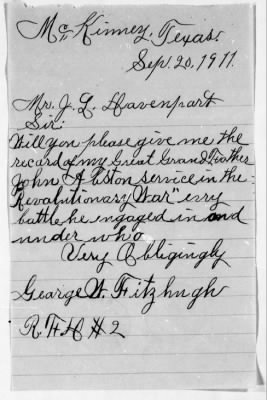 McKinney, Texas.
Sep. 20, 1911.
Mr. J. L. Davenpart
Sir:
Will you please give me the
record of my Great Grand Father
John Abston service in the
Revolutionary War" evry
battle he engaged in and
under who
Very Obligingly
George W. Fitzhugh
R. F. D #2